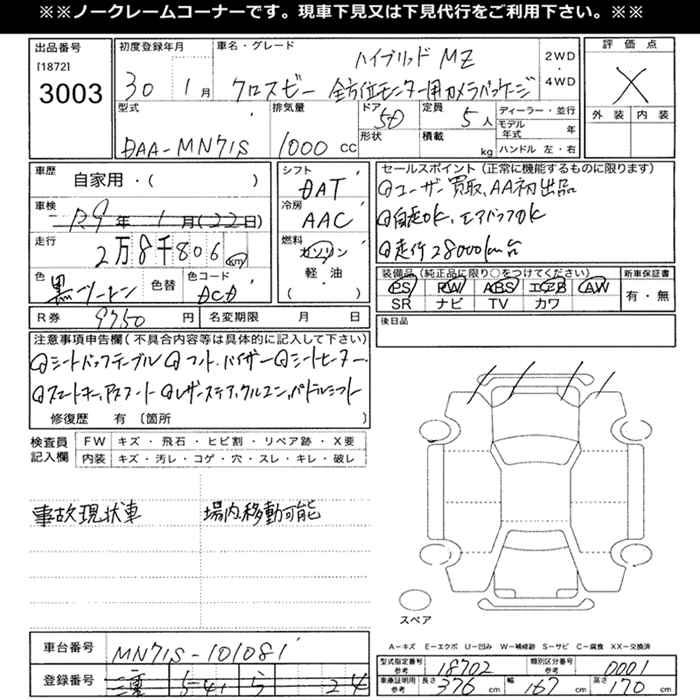 ※※ノークレームコーナーです。現車下見又は下見代行をご利用下さい。※※
出品番号
[1872]
3003
初度登録年月
30 1月
車名・グレード
ハイブリッド MZ
クロスビー 全方位モニター用カメラパッケージ
2WD
4WD
評価点
X
外装 内装
型式
DAA-MN71S
排気量
1000 CC
ドア 5D
形状
定員 5人
積載 kg
ディーラー・並行
モデル年式 年
ハンドル 左・右
車歴
自家用・( )
車検
R9年1月(22日)
走行
2万8千806 km
色
黒ツートン
色替
色コード
DCD
シフト
DAT
冷房
AAC
燃料
ガソリン
軽・油
( )
セールスポイント(正常に機能するものに限ります)
ユーザー買取、AA初出品
自走OK、エアバッグOK
走行28000km台
装備品(純正品に限り○をつけてください)
PS PW ABS エアB AW
SR ナビ TV カワ
新車保証書
有・無
R券 9750円
名変期限 月 日
後日品
注意事項申告欄(不具合内容等は具体的に記入して下さい)
シートバックテーブル フロントバイザー シートヒーター
スマートキー、プッシュスタート レザーステア、クルコン、パドルシフト
修復歴 有 〔箇所 〕
検査員
記入欄
FW キズ・飛石・ヒビ割・リペア跡・X要
内装 キズ・汚レ・コゲ・穴・スレ・キレ・破レ
事故現状車 場内移動可能
スペア
A-キズ E-エクボ U-凹み W-補修跡 S-サビ C-腐食 XX-交換済
車台番号
MN71S-101081
登録番号
三重 541 ら 24
型式指定番号
参考
18702
類別区分番号
参考
0001
車庫証明用
参考
長さ 376 cm 幅 167 cm 高さ 170 cm